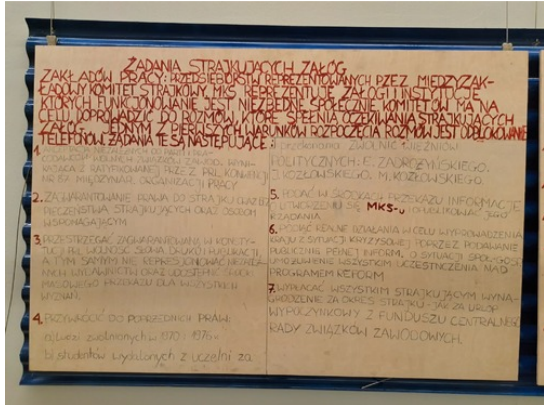 ŻĄDANIA STRAJKUJĄCYCH ZAŁÓG
ZAKŁADÓW PRACY: PRZEDSIĘBIORSTW REPREZENTOWANYCH PZEZ MIĘDZYZAK-
ŁADOWY KOMITET STRAJKOWY. MKS REPREZENTUJE ZAŁOGI I INSTYTUCJE
KTÓRYCH FUNKCJONOWANIE JEST NIEZBĘDNE SPOŁECZNIE. KOMITET MA NA
CELU DOPROWADZIĆ DO ROZMÓW, KTÓRE SPEŁNIĄ OCZEKIWANIA STRAJKUJĄCYCH
ZAŁÓG. JEDNYM Z PIERWSZYCH WARUNKÓW ROZPOCZĘCIA ROZMÓW JEST ODBLOKOWANIE
TELEFONÓW. ŻĄDANIA TE SĄ NASTĘPUJĄCE:
1. AKCEPTACJA NIEZALEŻNYCH OD PARTII I PRA-
CODAWKÓW WOLNYCH ZWIĄZKÓW ZAWOD. WYNI-
KAJĄCA Z RATYFIKOWANEJ PRZEZ PRL KONWENCJI
NR 87 MIĘDZYNAR. ORGANIZACJI PRACY
2. ZAGWARANTOWANIE PRAWA DO STRAJKU ORAZ BEZ
PIECZEŃSTWA STRAJKUJĄCYCH ORAZ OSOBOM
WSPOMAGAJĄCYM
3. PRZESTRZEGAĆ ZAGWARANTOWANĄ W KONSTY-
TUCJI PRL WOLNOŚĆ SŁOWA DRUKU I PUBLIKACJI,
A TYM SAMYM NIE REPRESJONOWAĆ NIEZALEŻ-
NYCH WYDAWNICTW ORAZ UDOSTĘPNIĆ ŚRODKI
MASOWEGO PRZEKAZU DLA WSZYSTKICH
WYZNAŃ.
4. PRZYWRÓCIĆ DO POPRZEDNICH PRAW:
a) ludzi zwolnionych w 1970 i 1976 r.
b) studentów wydalonych z uczelni za
przekonania ZWOLNIĆ WIĘŹNIÓW
POLITYCZNYCH: E. ZADROŻYŃSKIEGO.
J. KOZŁOWSKIEGO. M. KOZŁOWSKIEGO.
5. PODAĆ W ŚRODKACH PRZEKAZU INFORMACJE
O UTWORZENIU SIĘ MKS-u I OPUBLIKOWAĆ JEGO
ŻĄDANIA
6. PODJĄĆ REALNE DZIAŁANIA W CELU WYPROWADZENIA
KRAJU Z SYTUACJI KRYZYSOWEJ POPRZEZ PODAWANIE
PUBLICZNIE PEŁNEJ INFORM. O SYTUACJI SPOŁ-GOSP.
UMOŻLIWIENIE WSZYSTKIM UCZESTNICZENIA NAD
PROGRAMEM REFORM
7. WYPŁACAĆ WSZYSTKIM STRAJKUJĄCYM WYNA-
GRODZENIE ZA OKRES STRAJKU - JAK ZA URLOP
WYPOCZYNKOWY Z FUNDUSZU CENTRALNEJ
RADY ZWIĄZKÓW ZAWODOWYCH.